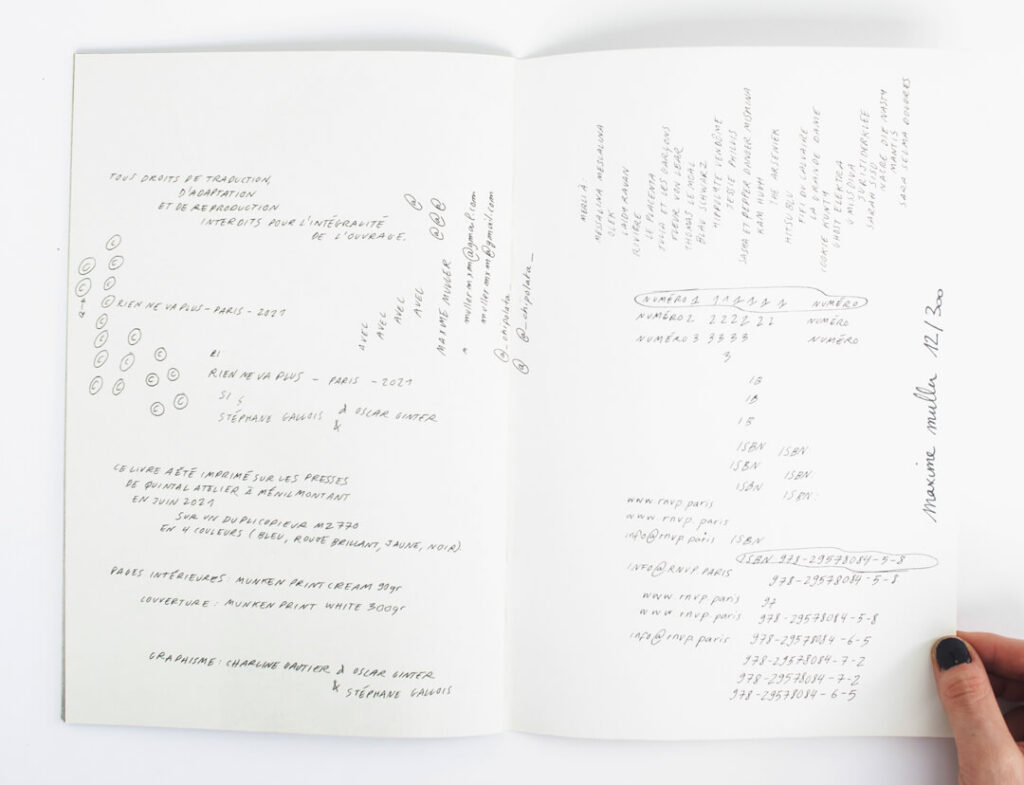 TOUS DROITS DE TRADUCTION,
D'ADAPTATION
ET DE REPRODUCTION
INTERDITS POUR L'INTÉGRALITÉ
DE L'OUVRAGE.
© RIEN NE VA PLUS - PARIS - 2021
RIEN NE VA PLUS - PARIS - 2021
SI
STÉPHANE GALLOIS & OSCAR GINTER
&
CE LIVRE A ÉTÉ IMPRIMÉ SUR LES PRESSES
DE QUINTAL ATELIER À MÉNILMONTANT
EN JUIN 2021
SUR UN DUPLICOPIEUR MZ 770
EN 4 COULEURS (BLEU, ROUGE BRILLANT, JAUNE, NOIR).
PAGES INTÉRIEURES: MUNKEN PRINT CREAM 90gr
COUVERTURE: MUNKEN PRINT WHITE 300gr
GRAPHISME: CHARLINE GAUTIER & OSCAR GINTER
& STÉPHANE GALLOIS
AVEC
AVEC
AVEC
AVEC @
MAXIME MULLER @@@
mullermxm@gmail.com
mullermxm@gmail.com
@_chipolata_
@ @_chipolata_
MERCI À:
MESCALINA MESCALINA
OLEK
LADY RAVAN
RIVIÈRE
LE PIMENTA
JULIA ET LES GARÇONS
THOMAS LE MOAL
BLAU SCHWARZ
HIPPOLYTE VENDÔME
TESSIE PHILVIS
KAM HUGH
THE ARSENIEK
MITSU BLU
FIEL DU CALVAIRE
LA GRANDE DAME
GHOST ELEKTRA
SARAH SOSO
MANTIS
SARA SELMA DOLORES
NUMÉRO 1 1 1 1 1 1 1 NUMÉRO
NUMÉRO 2 2 2 2 2 2 2 NUMÉRO
NUMÉRO 3 3 3 3 3 NUMÉRO
3
IB
IB
IB
ISBN ISBN
ISBN ISBN
ISBN ISBN:
www.rnvp.paris
www.rnvp.paris
info@rnvp.paris ISBN
ISBN 978-29578084-5-8
INFO@RNVP.PARIS 978-29578084-5-8
www.rnvp.paris 97
www.rnvp.paris 978-29578084-5-8
info@rnvp.paris 978-29578084-6-5
978-29578084-7-2
978-29578084-7-2
978-29578084-6-5
maxime muller 12/300